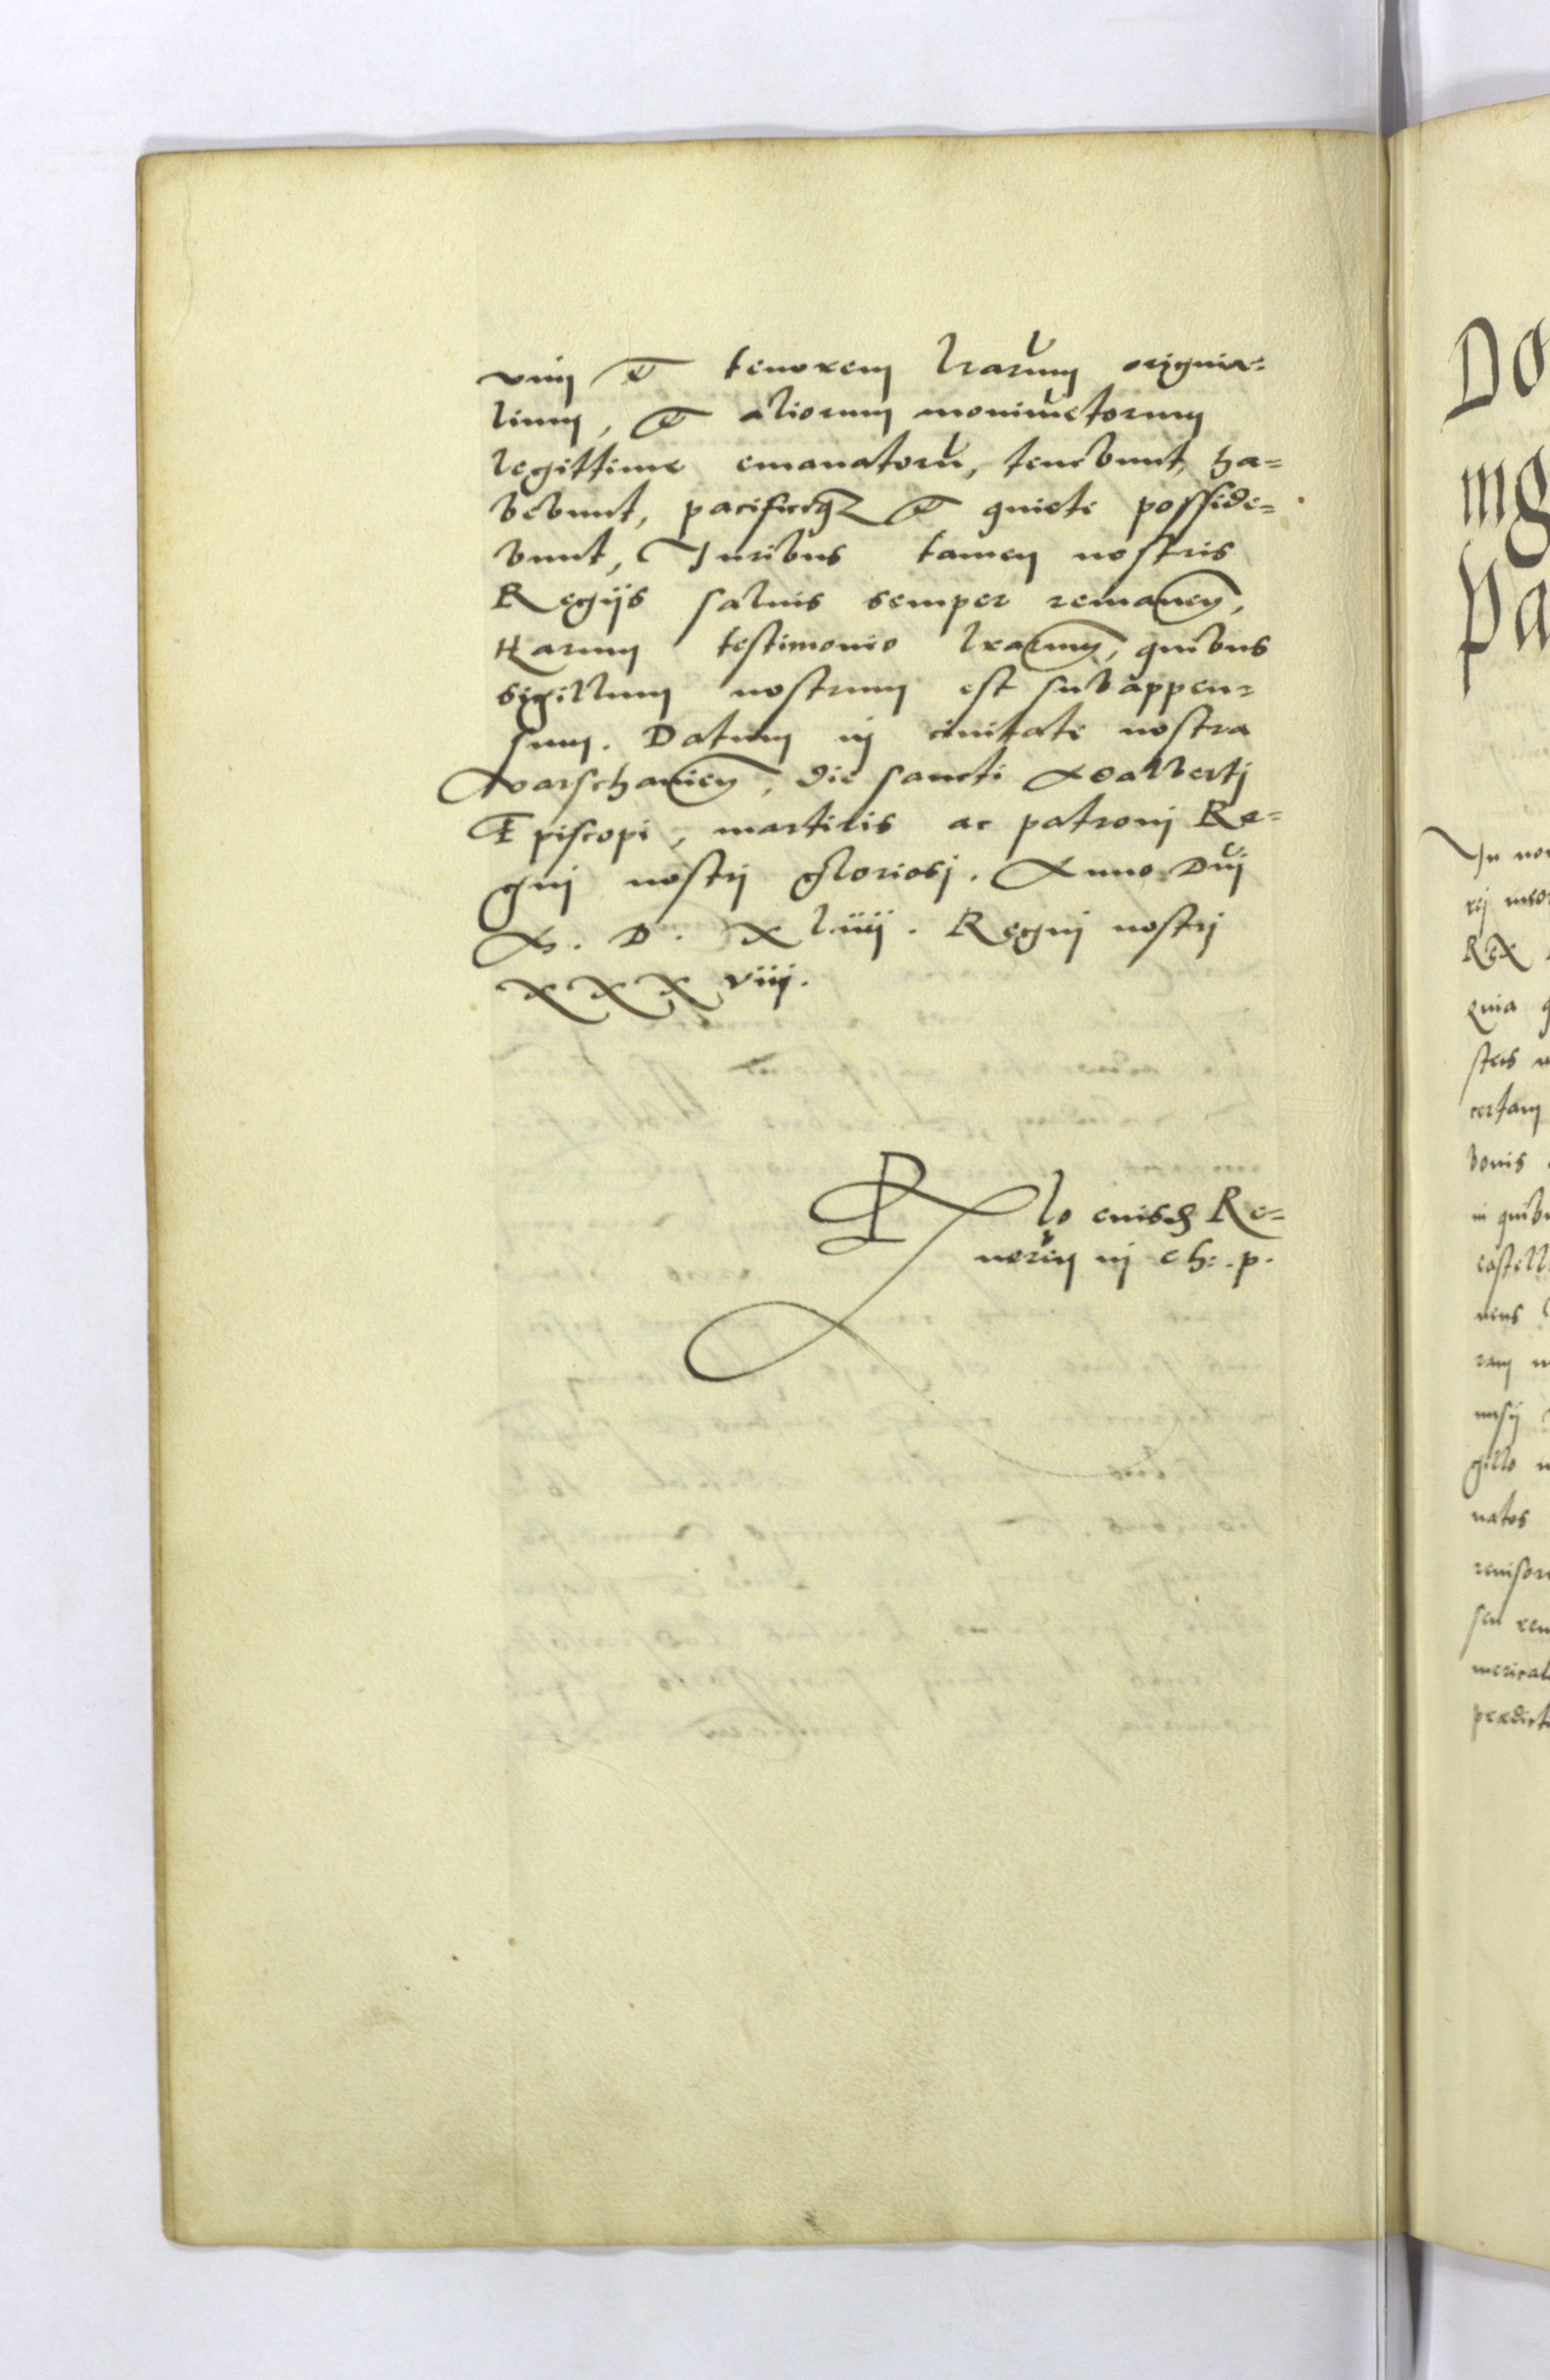 vim et tenorem lrarum origina=
lium, et aliorum monimetorum
legittime emanatoru, tenebunt, ha=
bebunt, pacificeq et quiete posside=
bunt, Iuribus tamen nostris
Regijs saluis semper remanen,
Harum testimonio lrarum, quibus
sigillum nostrum est subappen=
sum. Datum in ciuitate nostra
Varschauien, die sancti Adalberti
Episcopi, martiris ac patroni Re=
gni nostri gloriosi. Anno Dni
M. D. Xliiij. Regni nostri
XXX viij.
Rlo eiusd Re=
ueren in ch: p.
DO
mg
Pa
In no
Rex
quia
certam
bonis
in quib
castell
gillo
natos